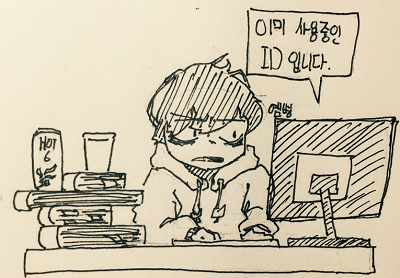 이미 사용중인
ID 입니다.
엠병
HOT
6